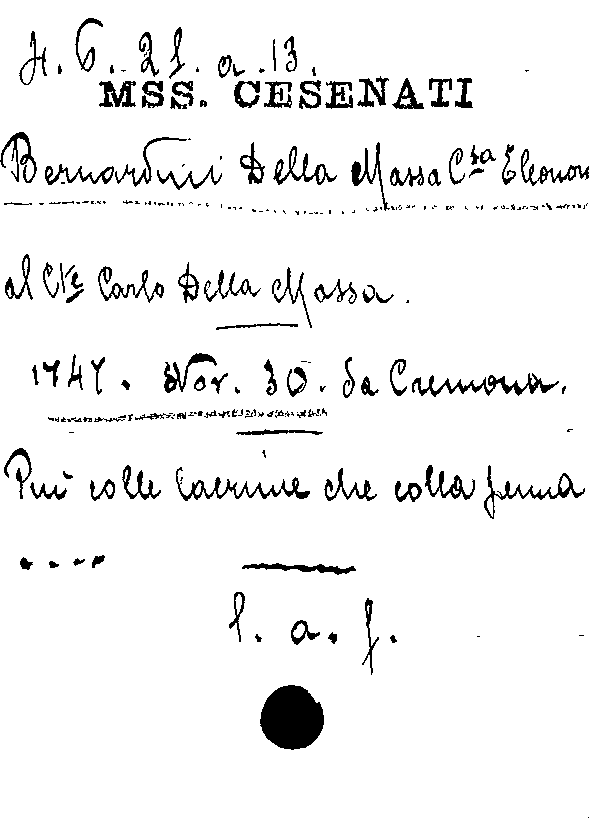 H. 6. 21. a. 13.
MSS. CESENATI
Bernardini Della Massa C.sa Eleonor
al C.te Carlo Della Massa.
1747. Nov. 30. da Cremona.
Più colle lacrime che colla penna
....
l. a. f.